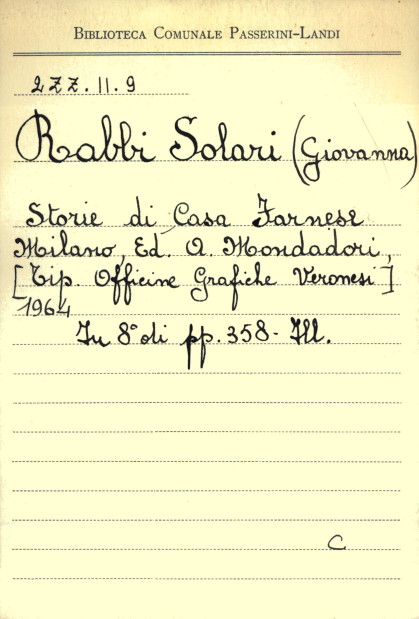 BIBLIOTECA COMUNALE PASSERINI-LANDI
2ZZ.11.9
Rabbi Solari (Giovanna)
Storie di Casa Farnese
Milano, Ed. A. Mondadori,
[Tip. Officine Grafiche Veronesi]
1964
In 8° di pp. 358 - Ill.
C